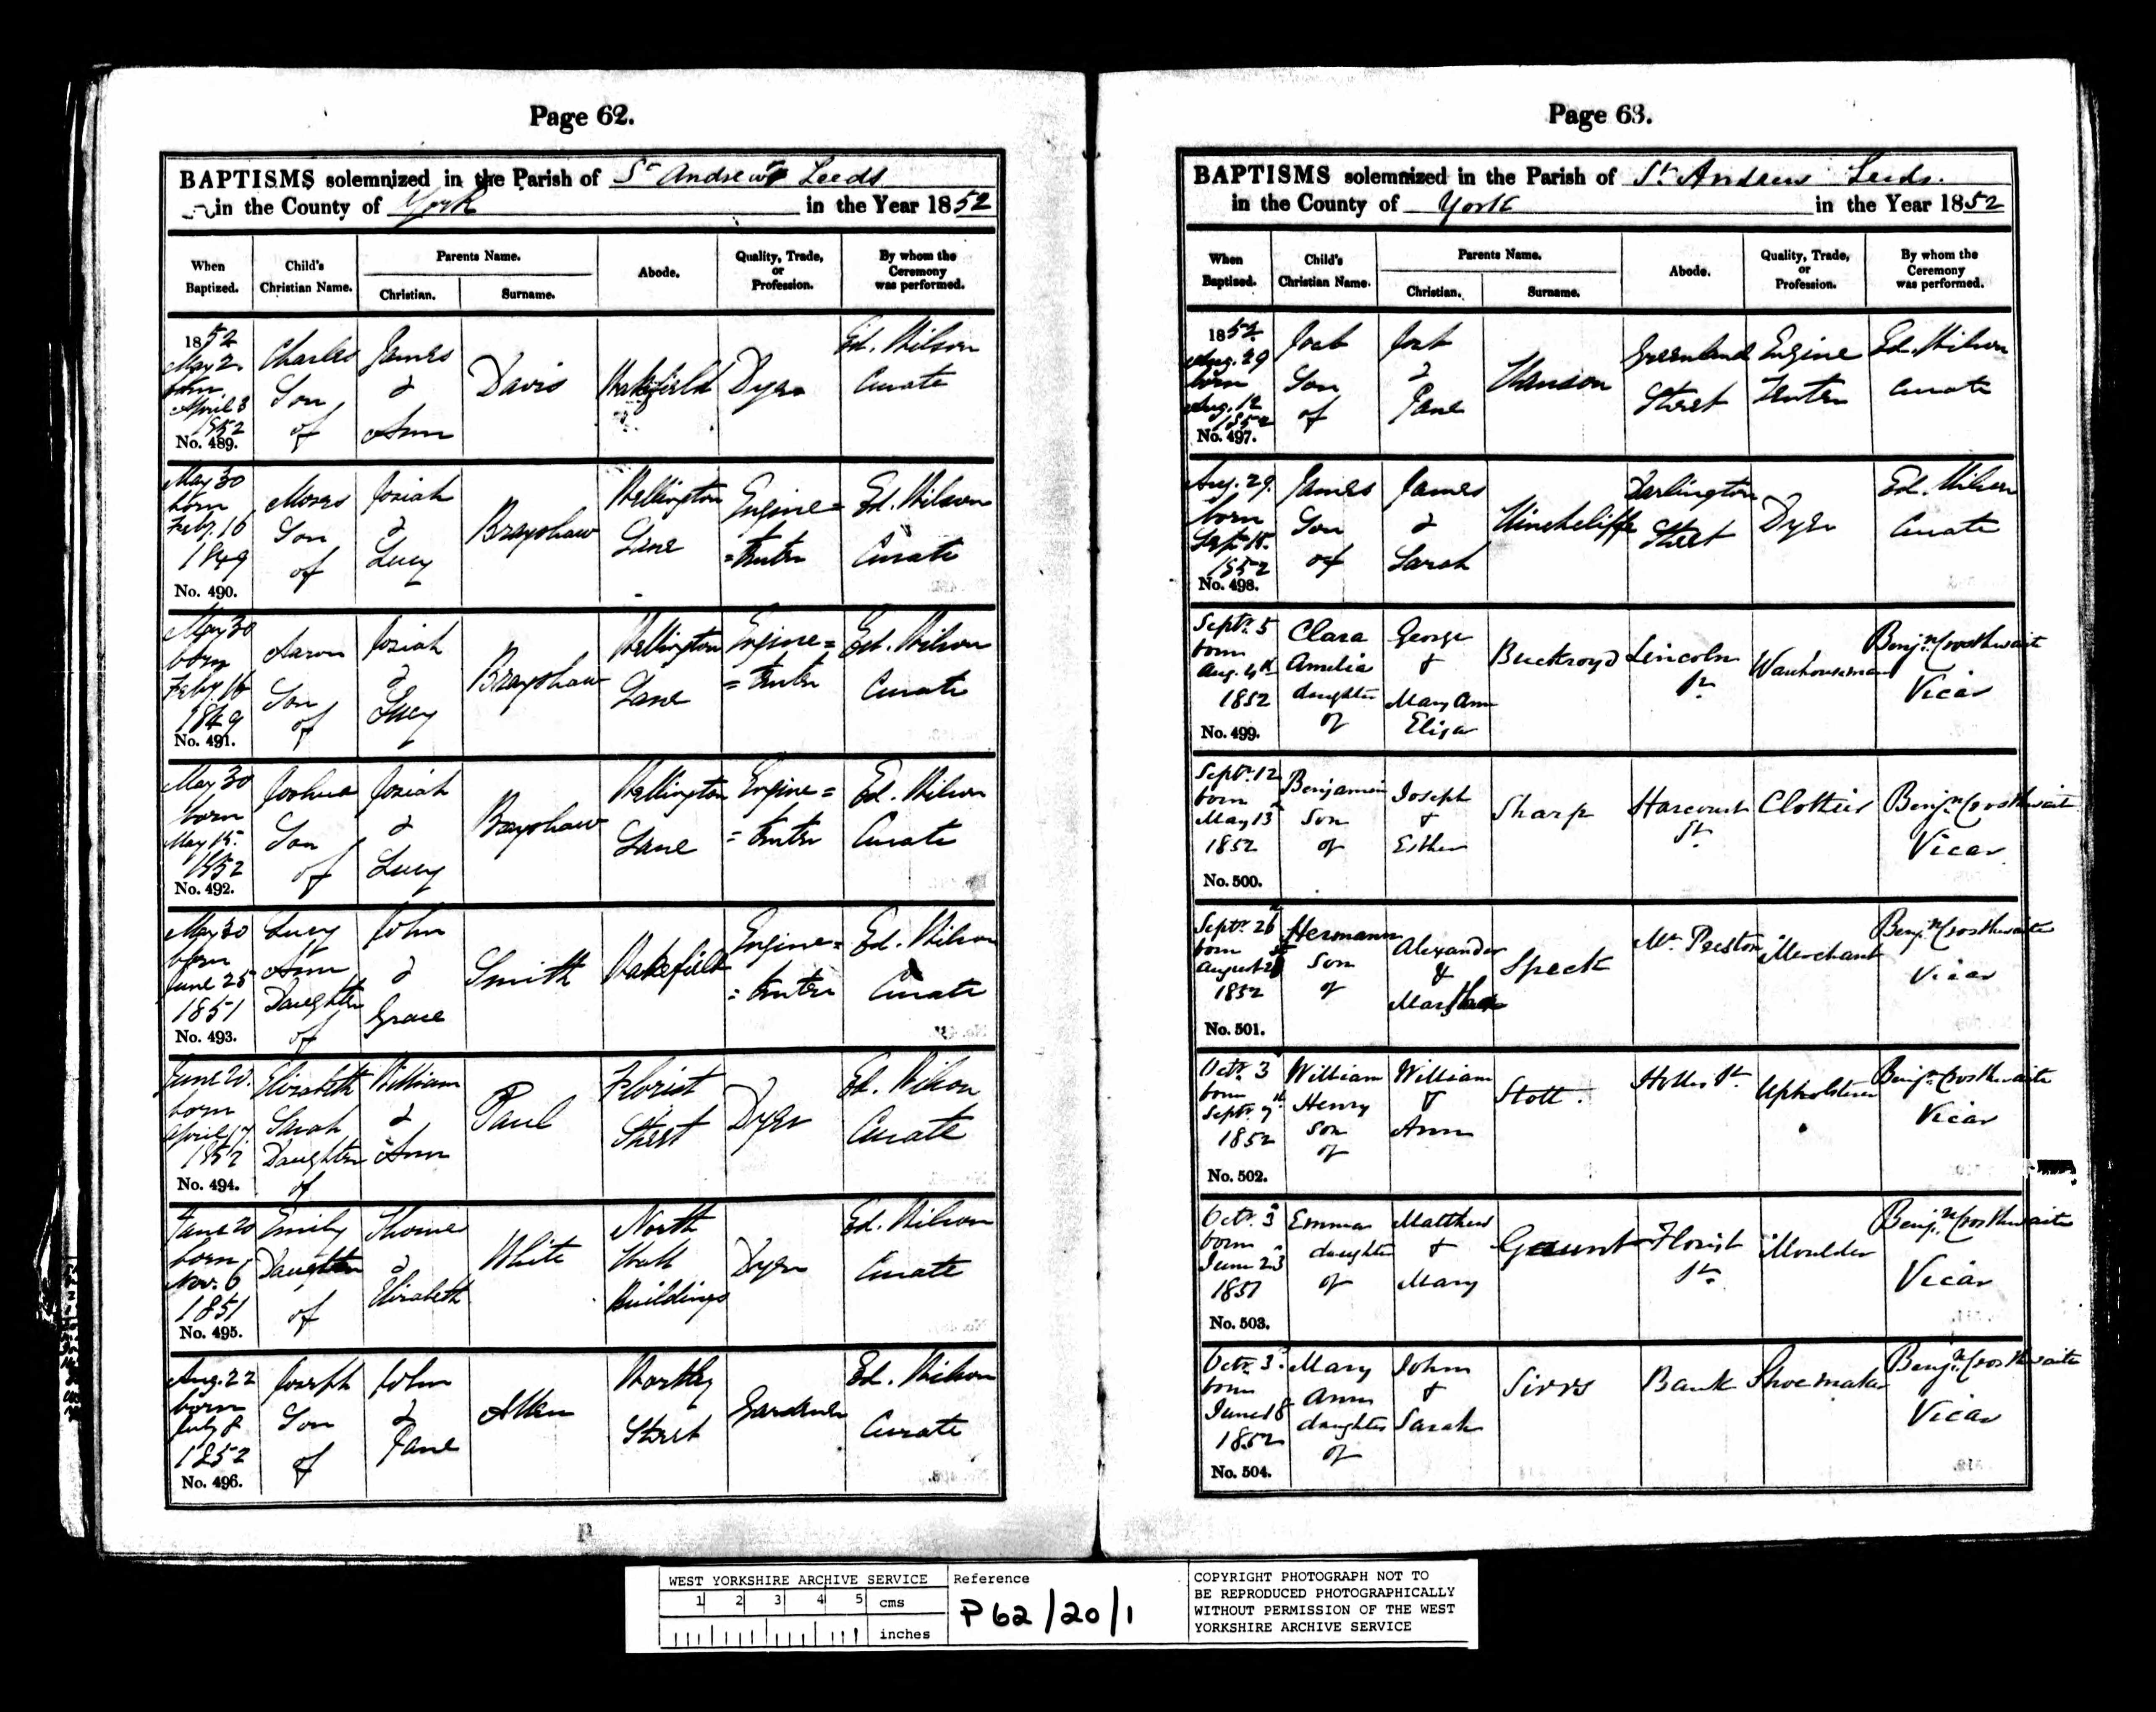 Page 62.
BAPTISMS solemnized in the Parish of St Andrew's Leeds
in the County of York in the Year 1852
When Baptized.
Child's Christian Name.
Parents Name.
Christian.
Surname.
Abode.
Quality, Trade, or Profession.
By whom the Ceremony was performed.
1852 May 2 born April 3 1852 No. 489.
Charles Son of
James & Ann
Davis
Wakefield
Dyer
Ed. Wilson Curate
May 30 born Feby. 16 1849 No. 490.
Moses Son of
Josiah & Lucy
Brayshaw
Wellington Lane
Engine= =tenter
Ed. Wilson Curate
May 30 born Feby. 16 1849 No. 491.
Aaron Son of
Josiah & Lucy
Brayshaw
Wellington Lane
Engine= =tenter
Ed. Wilson Curate
May 30 born May 15. 1852 No. 492.
Joshua Son of
Josiah & Lucy
Brayshaw
Wellington Lane
Engine= =tenter
Ed. Wilson Curate
May 30 born June 25 1851 No. 493.
Lucy Ann Daughter of
John & Grace
Smith
Wakefield
Engine= =tenter
Ed. Wilson Curate
June 20. born April 17. 1852 No. 494.
Elizabeth Sarah Daughter of
William & Ann
Paul
Florist Street
Dyer
Ed. Wilson Curate
June 20 born Nov. 6 1851 No. 495.
Emily Daughter of
Thomas & Elizabeth
White
North Hall Buildings
Dyer
Ed. Wilson Curate
Aug. 22 born July 8 1852 No. 496.
Joseph Son of
John & Jane
Allen
Wortley Street
Gardener
Ed. Wilson Curate
Page 63.
BAPTISMS solemnized in the Parish of St. Andrew Leeds.
in the County of York in the Year 1852
When Baptized.
Child's Christian Name.
Parents Name.
Christian.
Surname.
Abode.
Quality, Trade, or Profession.
By whom the Ceremony was performed.
1852 Aug. 29 born Aug. 12 1852 No. 497.
Son of
& Jane
Hanson
Greenland Street
Engine Tenter
Ed. Wilson Curate
Aug. 29. born Sept. 15. 1852 No. 498.
James Son of
James & Sarah
Hinchcliffe
Darlington Street
Dyer
Ed. Wilson Curate
Septr. 5 born Aug. 4th 1852 No. 499.
Clara Amelia daughter of
George & Mary Ann Eliza
Buckroyd
Lincoln St.
Warehouseman
Benjn. Crosthwaite Vicar
Septr. 12 born May 13th 1852 No. 500.
Benjamin Son of
Joseph & Esther
Sharp
Harcourt St.
Clothier
Benjn. Crosthwaite Vicar
Septr. 26 born August 1852 No. 501.
Hermann Son of
Alexander & Martha
Speck
Mt. Preston
Merchant
Benjn. Crosthwaite Vicar
Octr. 3 born Septr. 7th 1852 No. 502.
William Henry son of
William & Ann
Stott.
Hollis St.
Upholsterer
Benjn. Crosthwaite Vicar
Octr. 3 born June 23 1851 No. 503.
Emma daughter of
Matthew & Mary
Gaunt
Florist St.
Moulder
Benjn. Crosthwaite Vicar
Octr. 3. born June 18 1852 No. 504.
Mary Ann daughter of
John & Sarah
Sirrs
Bank
Shoemaker
Benjn. Crosthwaite Vicar
WEST YORKSHIRE ARCHIVE SERVICE
1 2 3 4 5 cms
inches
Reference
P62/20/1
COPYRIGHT PHOTOGRAPH NOT TO
BE REPRODUCED PHOTOGRAPHICALLY
WITHOUT PERMISSION OF THE WEST
YORKSHIRE ARCHIVE SERVICE